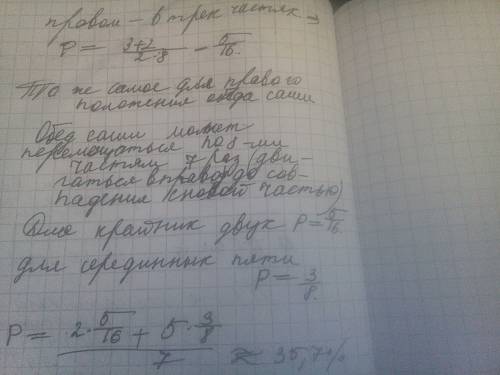 правом - в трех частях →
P = (3+2)/(2·8) = 5/16
То же самое для правого
положения обеда саши
Обед саши может
перемещаться по 8-ми
частям 7 раз (дви-
гаться вправо до сов-
падения с новой частью)
Для крайних двух P = 5/16
для серединных пяти
P = 3/8
P = (2·5/16 + 5·3/8)/7 ≈ 35,7%